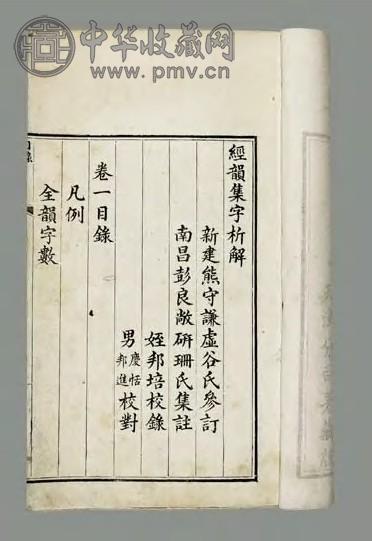 中华收藏网
www.pmv.cn
經韻集字析解
新建熊守謙虛谷氏參訂
南昌彭良敞硏珊氏集註
姪邦培校錄
男慶恬邦進校對
卷一目錄
凡例
全韻字數